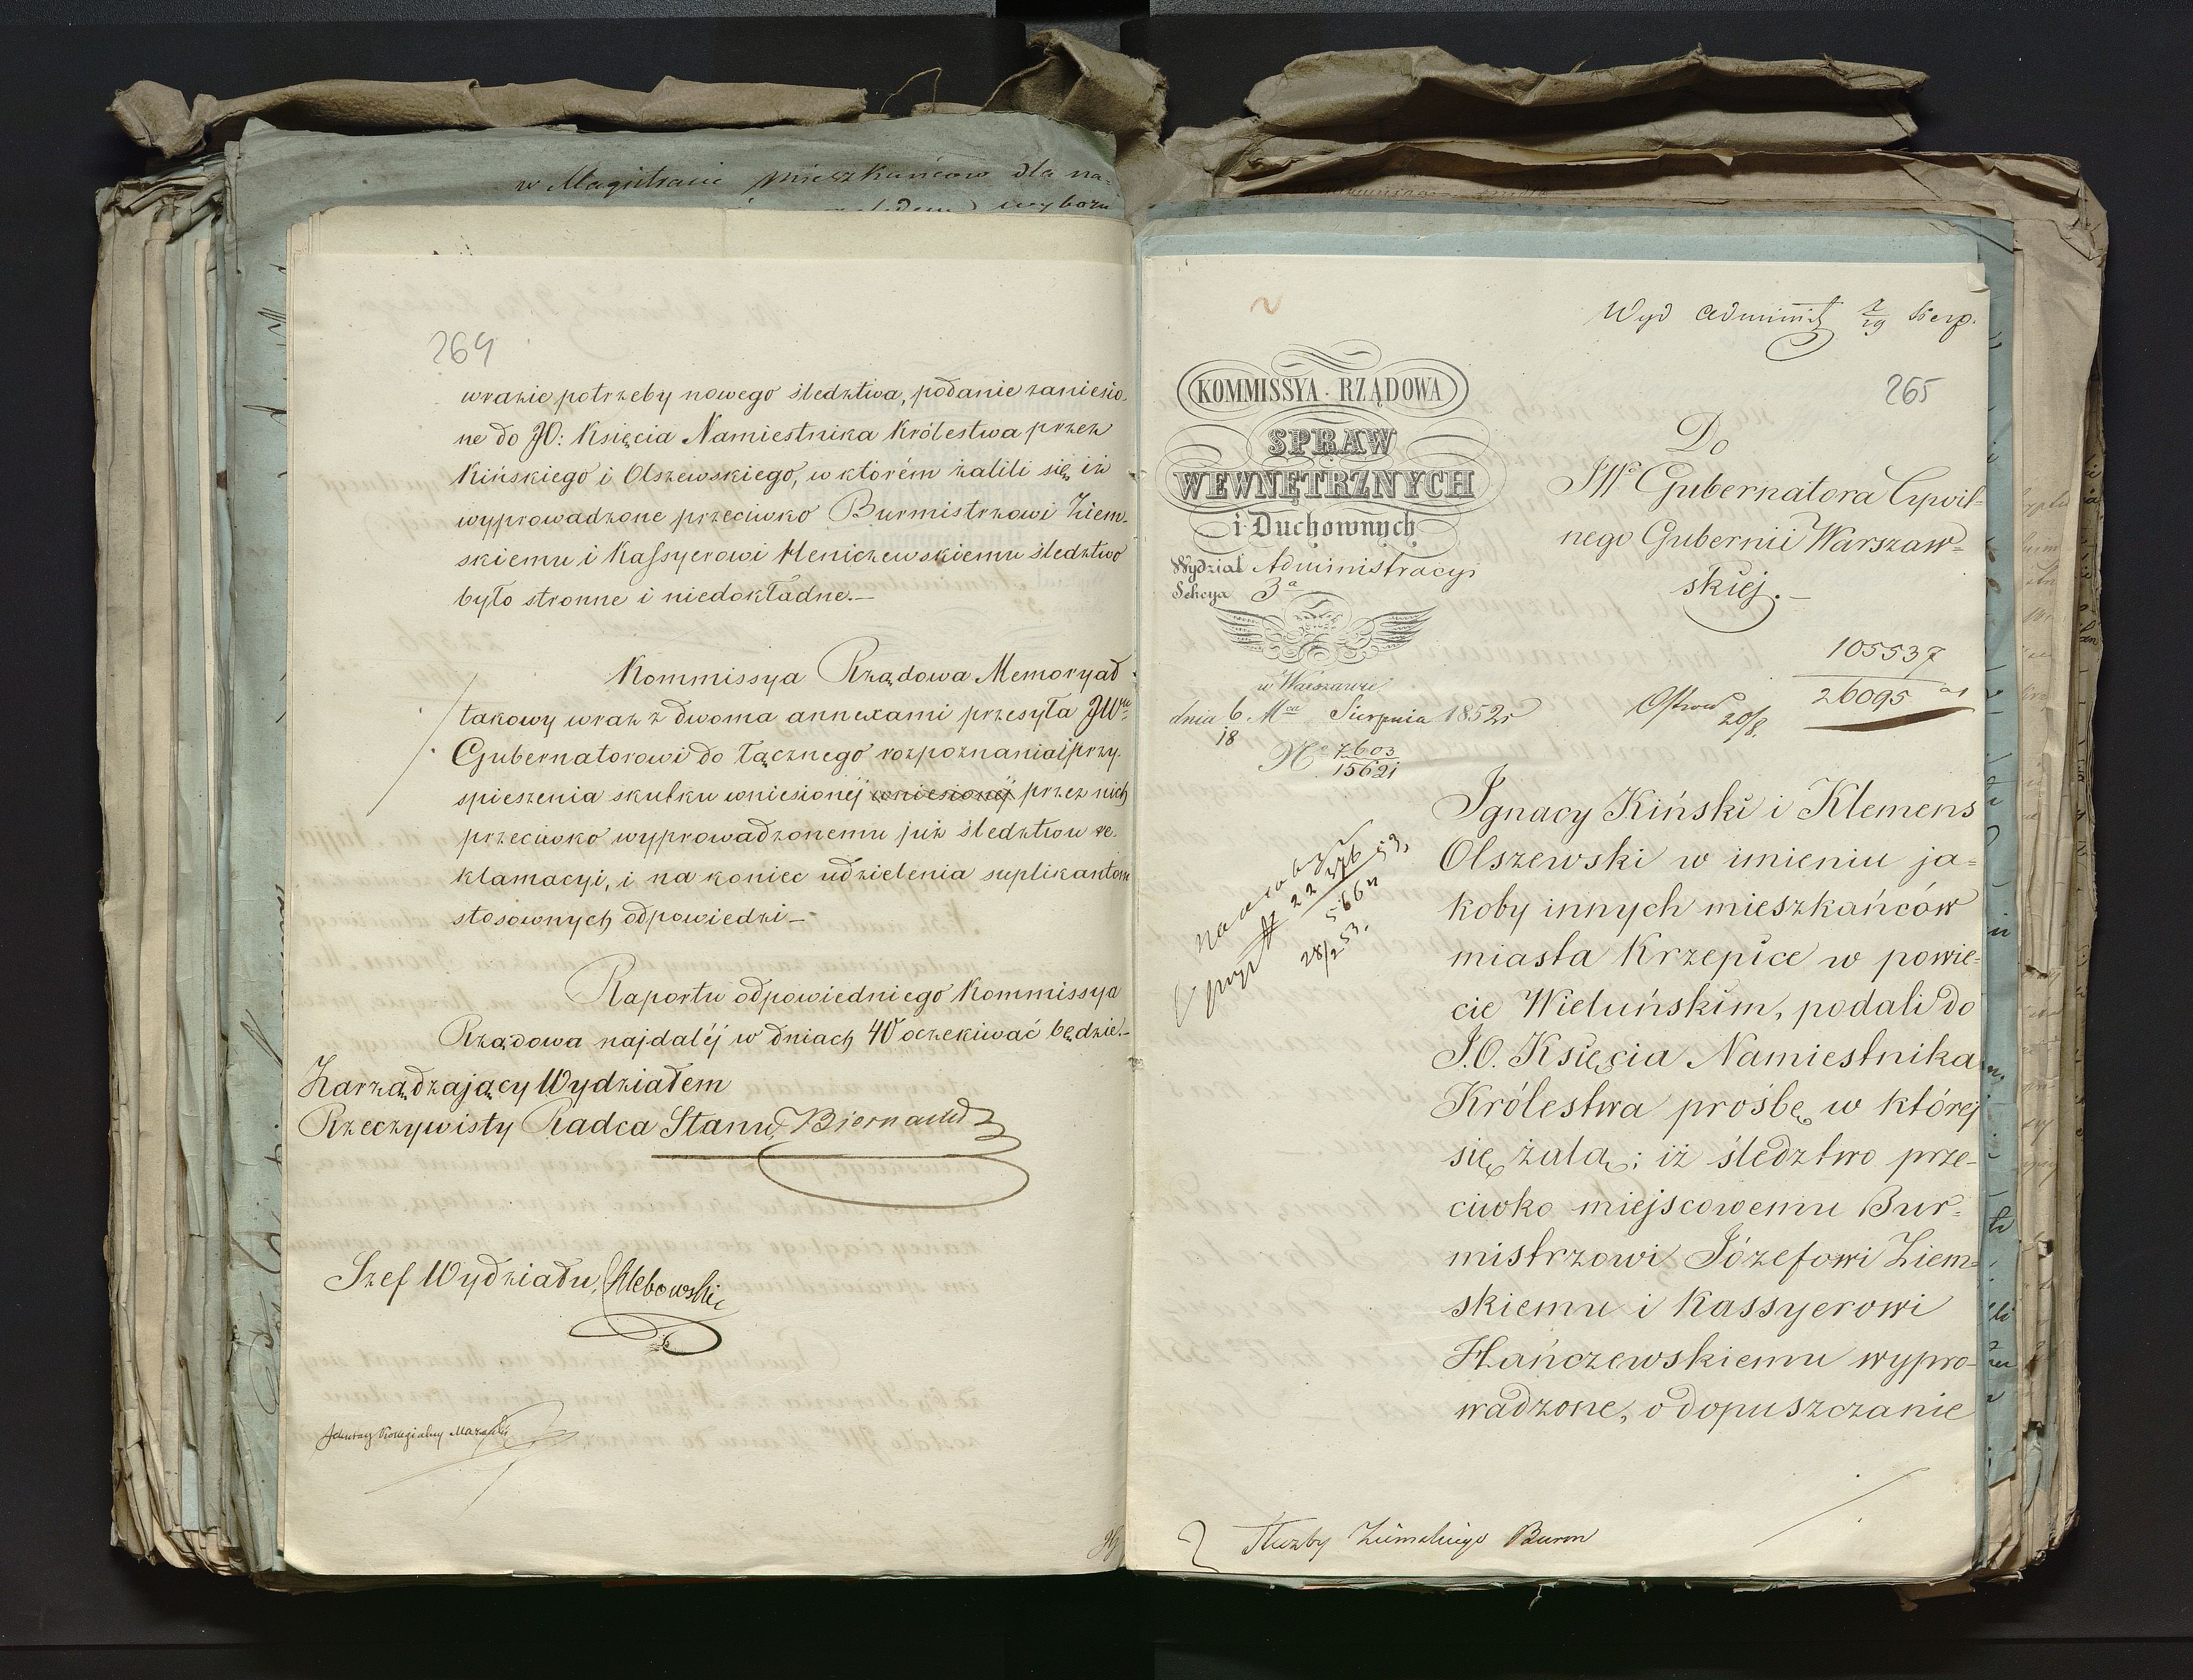 w Magistracie mieszkańców dla na=
wyboru
264
wrazie potrzeby nowego śledztwa, podanie zaniesio-
ne do JO: Księcia Namiestnika Królestwa przez
Kińskiego i Olszewskiego, w którém żalili się, iż
wyprowadzone przeciwko Burmistrzowi Ziem-
skiemu i Kassyerowi Heniczewskiemu śledztwo
było stronne i niedokładne.—
Kommissya Rządowa Memoryał
takowy wraz z dwoma annexami przesyła JWmu
Gubernatorowi do łącznego rozpoznania i przy-
spieszenia skutku wniesionéj wniesionéj przez nich
przeciwko wyprowadzonemu już śledztwu re-
klamacyi, i na koniec udzielenia suplikantom
stosownych odpowiedzi—
Raportu odpowiedniego Kommissya
Rządowa najdaléj w dniach 40 oczekiwać będzie.—
Zarządzający Wydziałem
Rzeczywisty Radca Stanu, Biernacki
Szef Wydziału, Chlebowski
Sekretarz Kollegialny
Wyd Administ 7/19 Sierp.
265
KOMMISSYA RZĄDOWA
SPRAW
WEWNĘTRZNYCH
i Duchownych
Wydział Administracyi
Sekcya 3a
w Warszawie
dnia 6/18 Mca Sierpnia 1852 r
No 7603/15621
Do
JWo Gubernatora Cywil=
nego Gubernii Warszaw=
skiej.—
105537
26095
20/8.
22376
5664
28/2 53.
Ignacy Kiński i Klemens
Olszewski w imieniu ja=
koby innych mieszkańców
miasta Krzepice w powie=
cie Wieluńskim, podali do
J.O. Księcia Namiestnika
Królestwa prośbę w której
się żalą; iż śledztwo prze=
ciwko miejscowemu Bur=
mistrzowi Józefowi Ziem=
skiemu i Kassyerowi
Hańczewskiemu wypro=
wadzone, o dopuszczanie
Służby Ziemskiego Burm